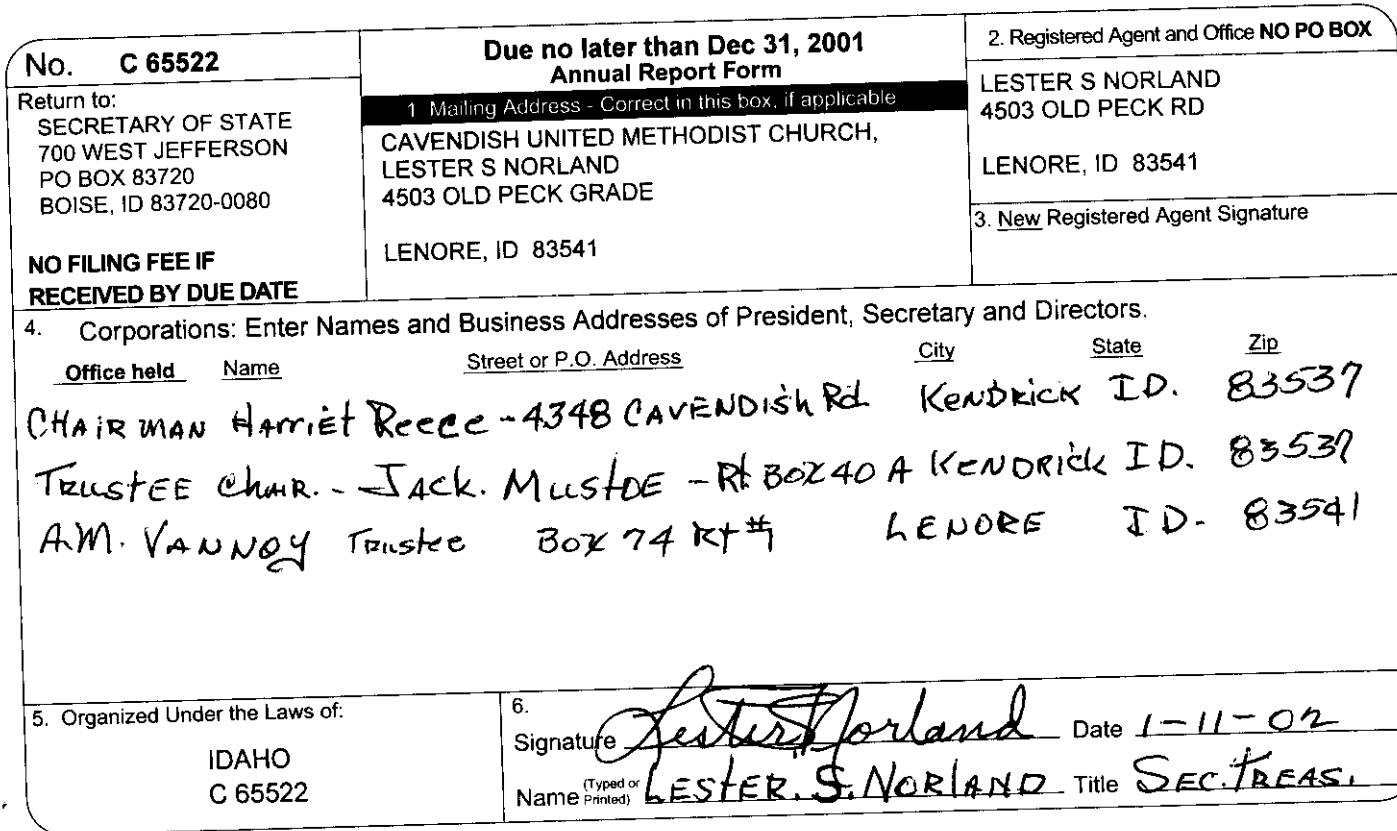 No. C 65522
Return to:
SECRETARY OF STATE
700 WEST JEFFERSON
PO BOX 83720
BOISE, ID 83720-0080
NO FILING FEE IF
RECEIVED BY DUE DATE
Due no later than Dec 31, 2001
Annual Report Form
1 Mailing Address - Correct in this box, if applicable
CAVENDISH UNITED METHODIST CHURCH,
LESTER S NORLAND
4503 OLD PECK GRADE
LENORE, ID 83541
2. Registered Agent and Office NO PO BOX
LESTER S NORLAND
4503 OLD PECK RD
LENORE, ID 83541
3. New Registered Agent Signature
4. Corporations: Enter Names and Business Addresses of President, Secretary and Directors.
Office held Name Street or P.O. Address City State Zip
CHAIRMAN Harriet Reece - 4348 CAVENDISh Rd KENDRICK ID. 83537
TRUSTEE ChAIR. - JACK. MUSTOE - Rt BOX 40 A KENDRICK ID. 83537
A.M. VANNOY Trustee Box 74 Rt # LENORE ID- 83541
5. Organized Under the Laws of:
IDAHO
C 65522
6.
Signature Lester S Norland Date 1-11-02
Name (Typed or Printed) LESTER. S. NORLAND Title SEC. TREAS.